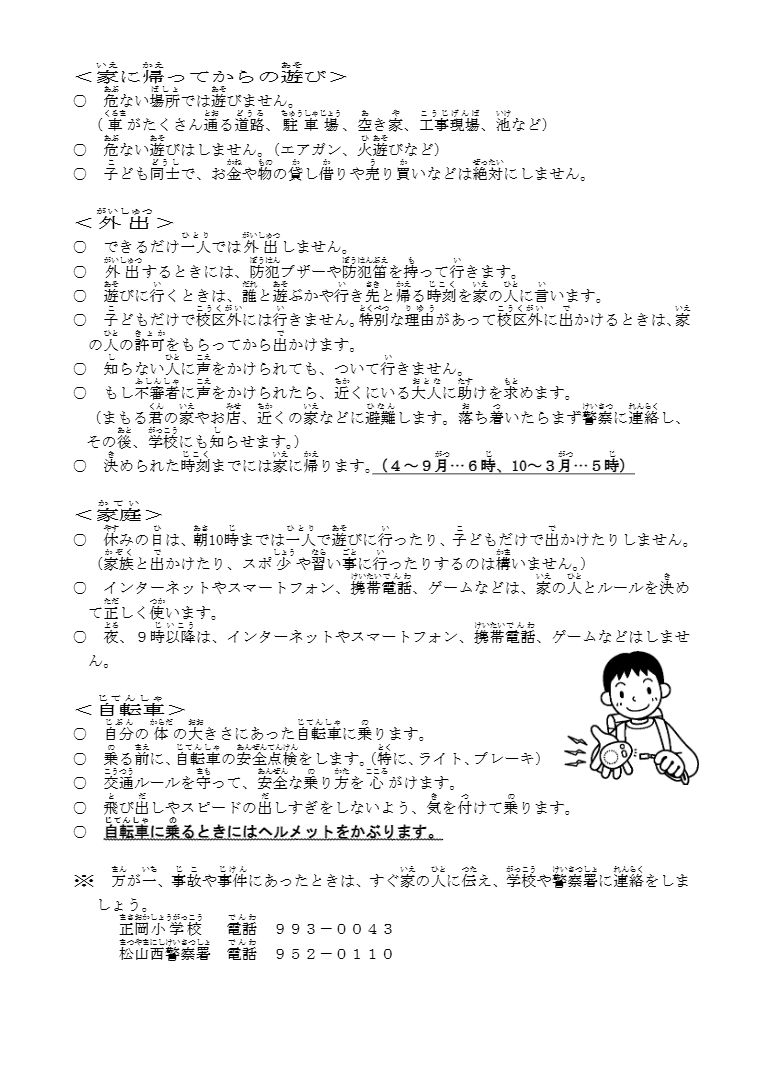 ＜家に帰ってからの遊び＞
○　危ない場所では遊びません。
（車がたくさん通る道路、駐車場、空き家、工事現場、池など）
○　危ない遊びはしません。（エアガン、火遊びなど）
○　子ども同士で、お金や物の貸し借りや売り買いなどは絶対にしません。
＜外出＞
○　できるだけ一人では外出しません。
○　外出するときには、防犯ブザーや防犯笛を持って行きます。
○　遊びに行くときは、誰と遊ぶかや行き先と帰る時刻を家の人に言います。
○　子どもだけで校区外には行きません。特別な理由があって校区外に出かけるときは、家
の人の許可をもらってから出かけます。
○　知らない人に声をかけられても、ついて行きません。
○　もし不審者に声をかけられたら、近くにいる大人に助けを求めます。
（まもる君の家やお店、近くの家などに避難します。落ち着いたらまず警察に連絡し、
その後、学校にも知らせます。）
○　決められた時刻までには家に帰ります。（４～９月…６時、10～３月…５時）
＜家庭＞
○　休みの日は、朝10時までは一人で遊びに行ったり、子どもだけで出かけたりしません。
（家族と出かけたり、スポ少や習い事に行ったりするのは構いません。）
○　インターネットやスマートフォン、携帯電話、ゲームなどは、家の人とルールを決め
て正しく使います。
○　夜、９時以降は、インターネットやスマートフォン、携帯電話、ゲームなどはしませ
ん。
＜自転車＞
○　自分の体の大きさにあった自転車に乗ります。
○　乗る前に、自転車の安全点検をします。（特に、ライト、ブレーキ）
○　交通ルールを守って、安全な乗り方を心がけます。
○　飛び出しやスピードの出しすぎをしないよう、気を付けて乗ります。
○　自転車に乗るときにはヘルメットをかぶります。
※　万が一、事故や事件にあったときは、すぐ家の人に伝え、学校や警察署に連絡をしま
しょう。
正岡小学校　電話　９９３－００４３
松山西警察署　電話　９５２－０１１０